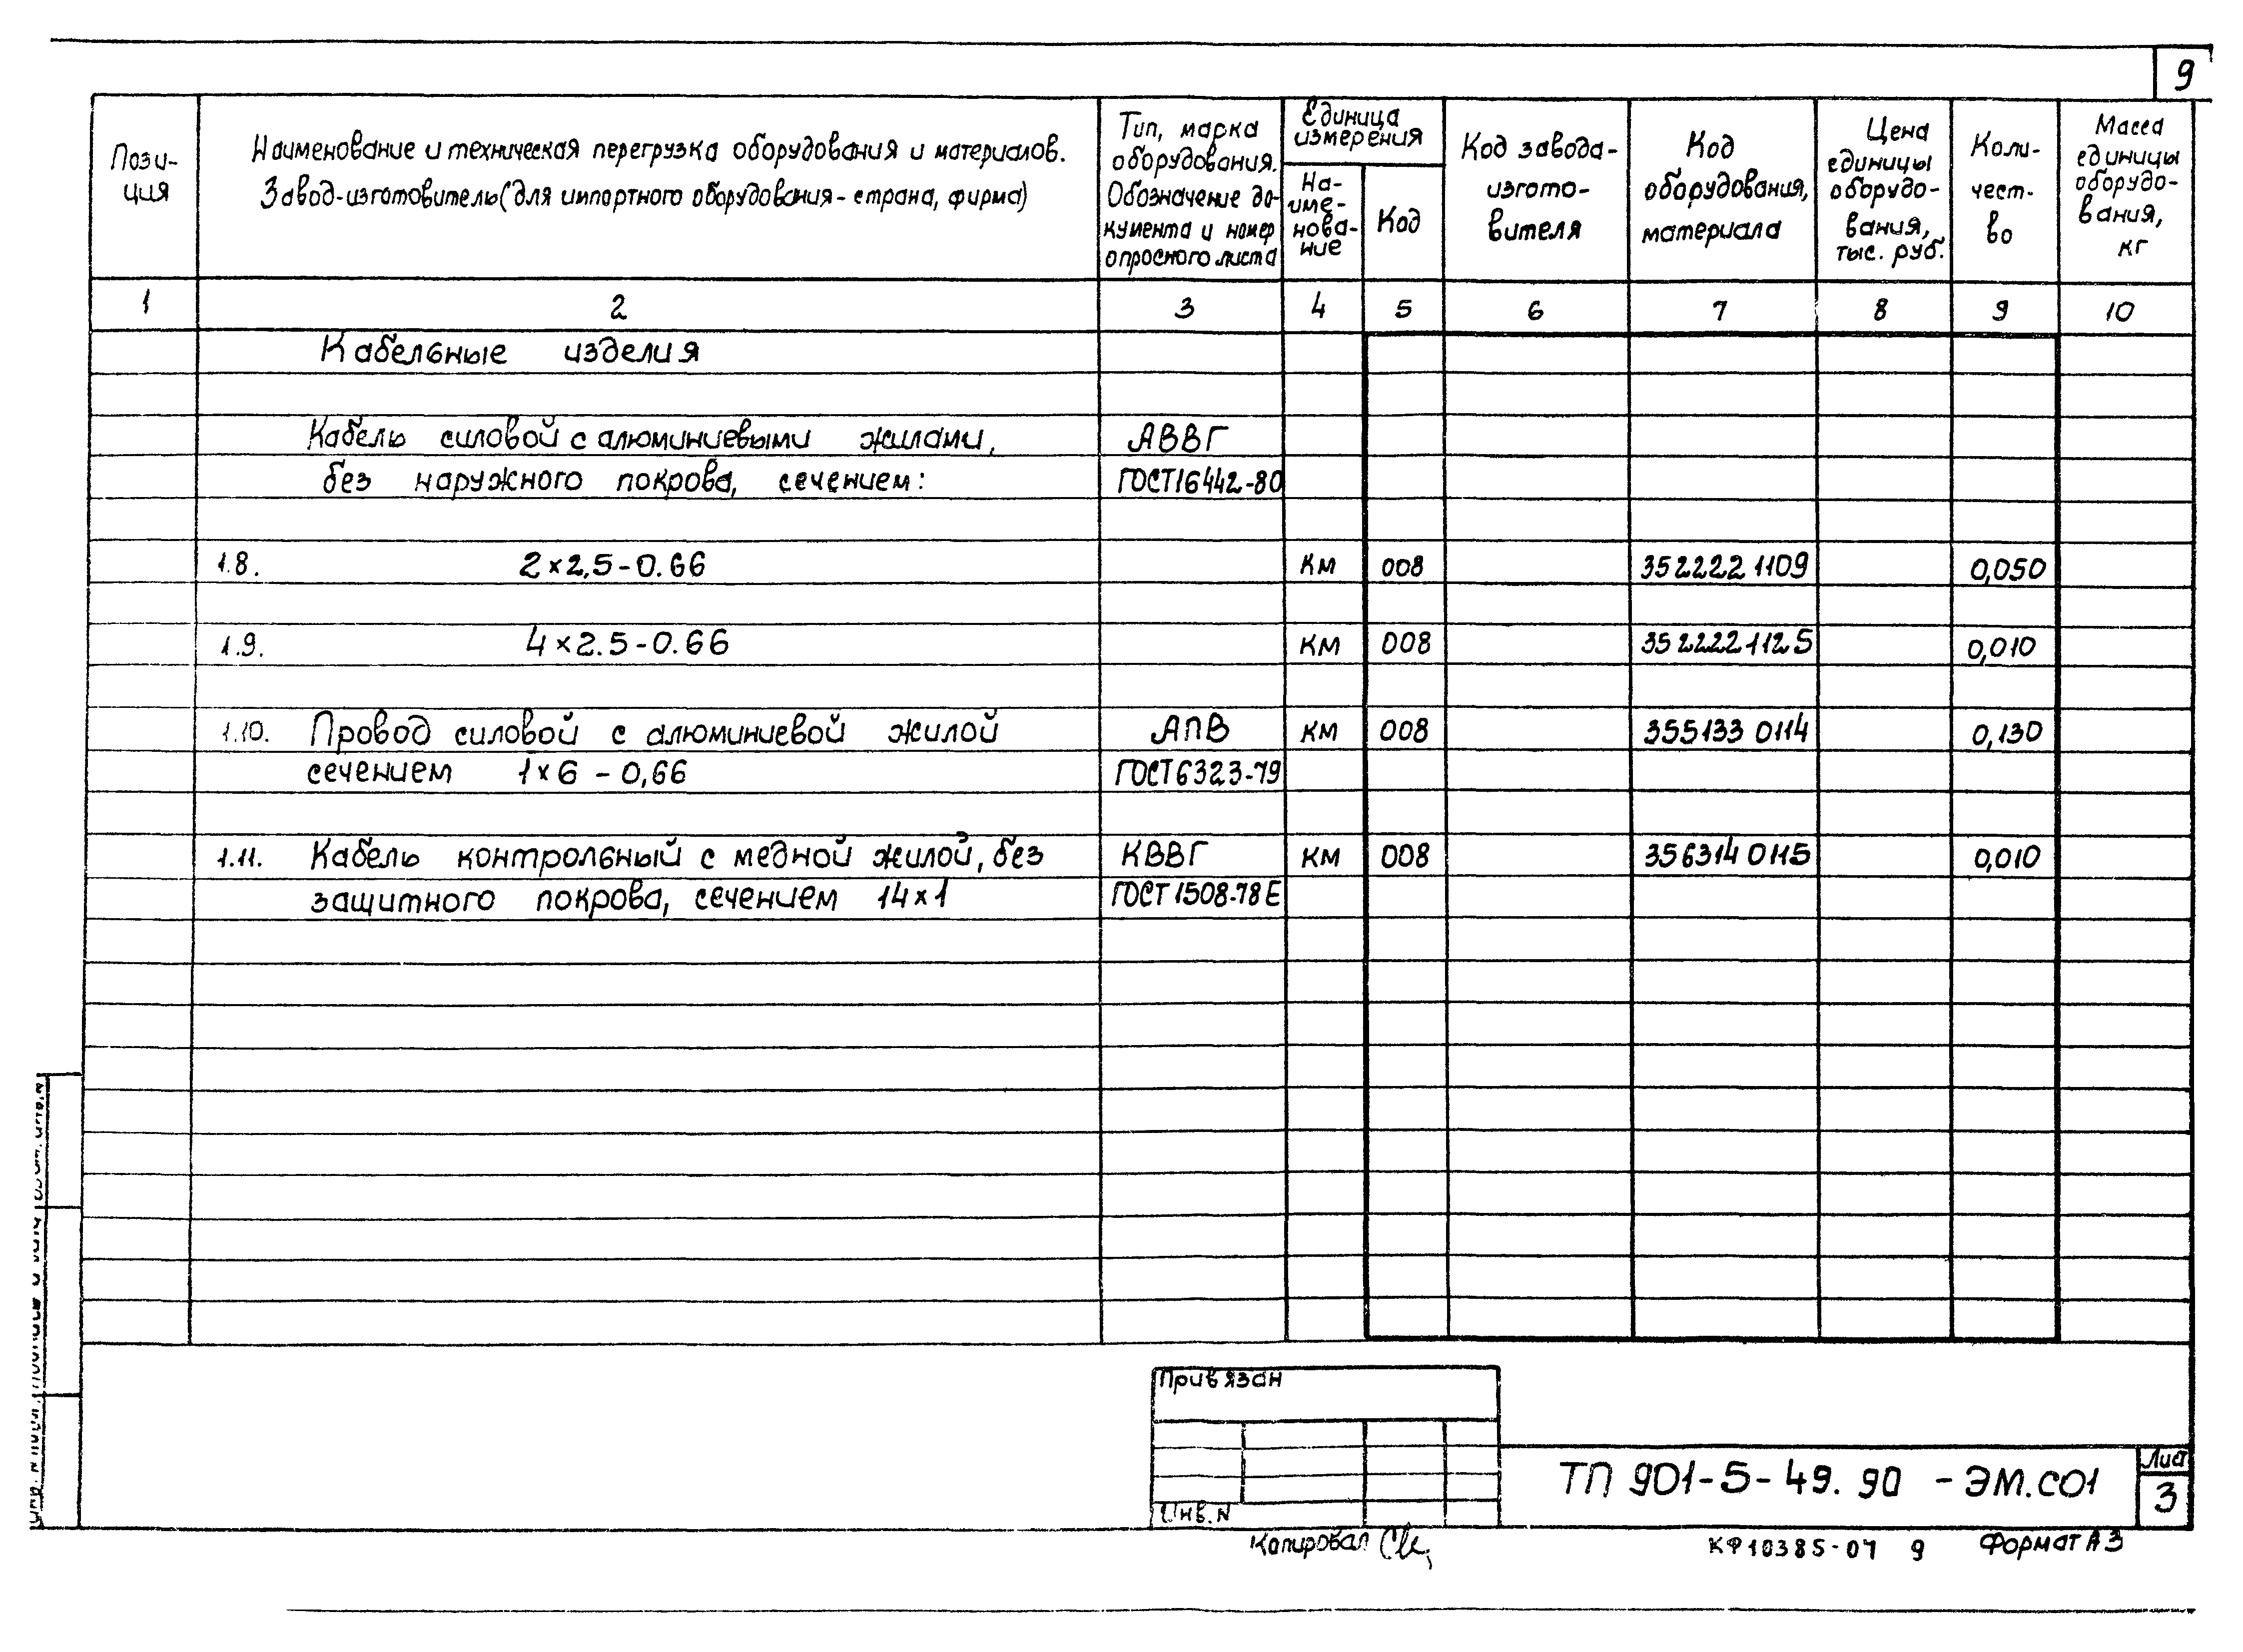 9
Пози-
ция
Наименование и техническая перегрузка оборудования и материалов.
Завод-изготовитель (для импортного оборудования - страна, фирма)
Тип, марка
оборудования.
Обозначение до-
кумента и номер
опросного листа
Единица
измерения
На-
име-
нова-
ние
Код
Код завода-
изгото-
вителя
Код
оборудования,
материала
Цена
единицы
оборудо-
вания,
тыс. руб.
Коли-
чест-
во
Масса
единицы
оборудо-
вания,
кг
1 2 3 4 5 6 7 8 9 10
Кабельные изделия
Кабель силовой с алюминиевыми жилами, АВВГ
без наружного покрова, сечением: ГОСТ 16442-80
1.8. 2×2,5-0.66 км 008 352222 1109 0,050
1.9. 4×2.5-0.66 км 008 352222 1125 0,010
1.10. Провод силовой с алюминиевой жилой АПВ км 008 355133 0114 0,130
сечением 1×6 - 0,66 ГОСТ 6323-79
1.11. Кабель контрольный с медной жилой, без КВВГ км 008 356314 0115 0,010
защитного покрова, сечением 14×1 ГОСТ 1508-78Е
Привязан
Инв. N
ТП 901-5-49.90 - ЭМ.СО1
Лист
3
Копировал
КФ10385-07 9 Формат А3